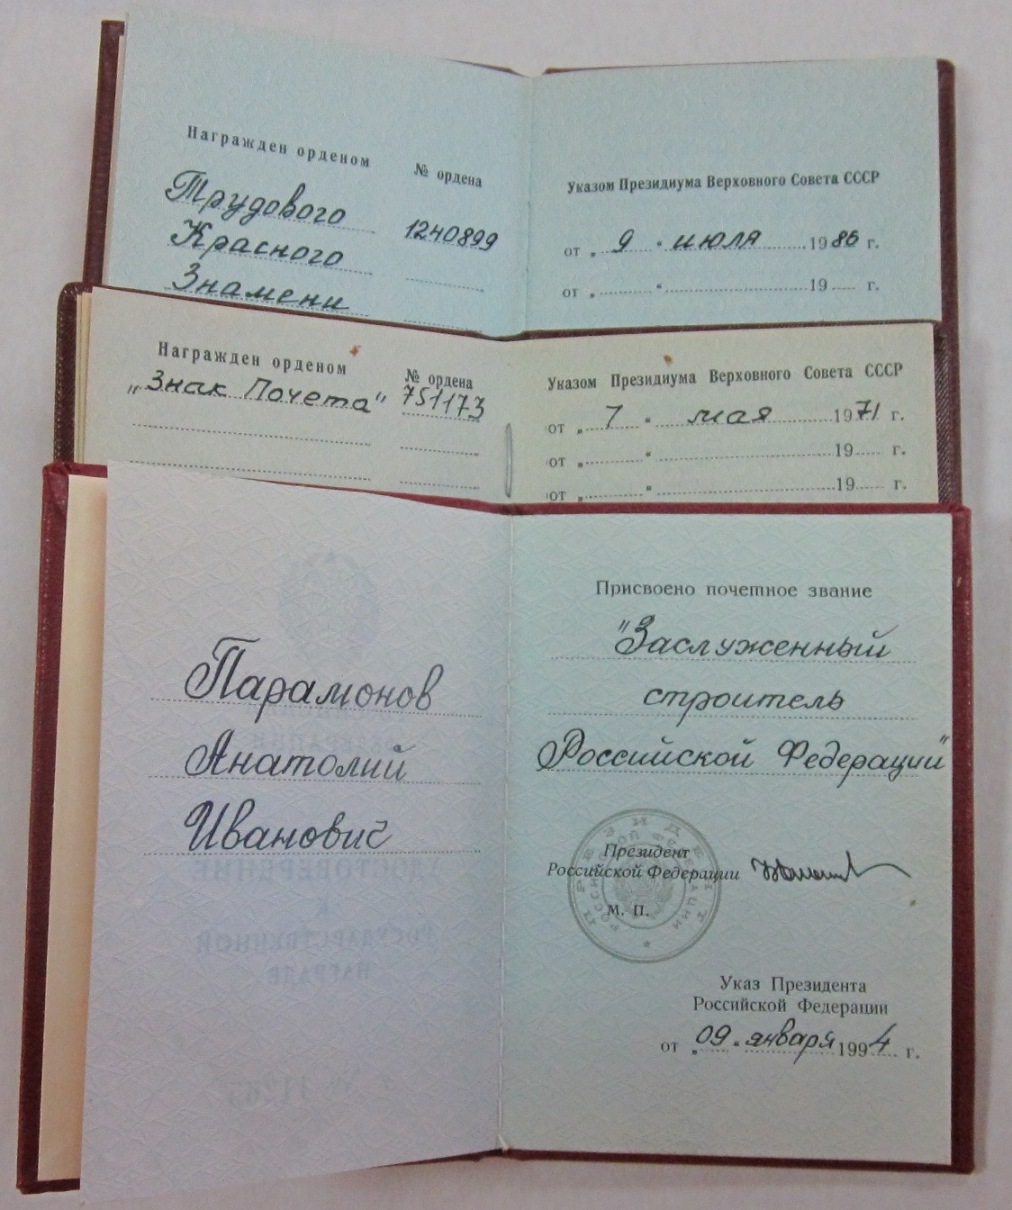 Награжден орденом
№ ордена
Трудового
Красного
Знамени
1240899
Указом Президиума Верховного Совета СССР
от „ 9 “ июля 1986 г.
от „ “ 19 г.
Награжден орденом
№ ордена
„Знак Почета“
751173
Указом Президиума Верховного Совета СССР
от „ 7 “ мая 1971 г.
от „ “ 19 г.
от „ “ 19 г.
Парамонов
Анатолий
Иванович
Присвоено почетное звание
"Заслуженный
строитель
Российской Федерации"
Президент
Российской Федерации
М. П.
ПРЕЗИДЕНТ
РОССИЙСКОЙ ФЕДЕРАЦИИ
Указ Президента
Российской Федерации
от „ 09 “ января 1994 г.